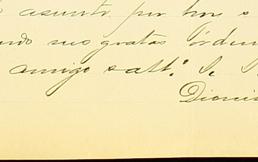 asunto por tres s
ando sus gratas órden
amigo y att.º S. S.
Dionis